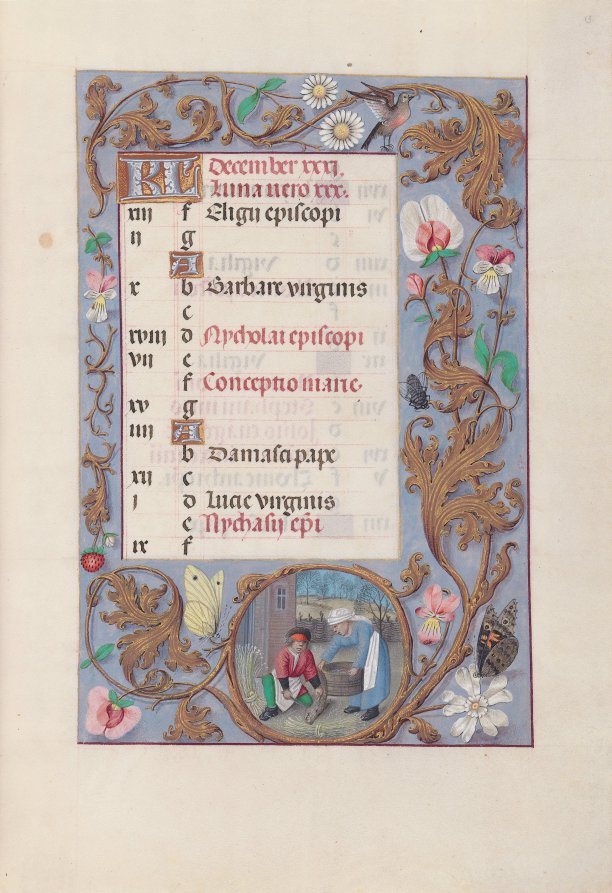 KL December xxxi.
Luna vero xxx.
xiii f Eligii episcopi
ii g
A
x b Barbare virginis
c
xviii d Nycholai episcopi
vii e
f Conceptio marie.
xv g
iiii A
b Damasci pape
xii c
i d Lucie virginis
e Nychasii epi
ix f